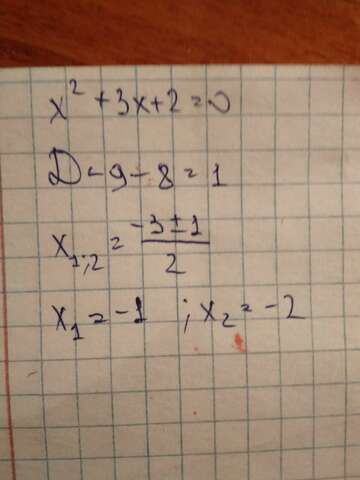 x² + 3x + 2 = 0
D = 9 - 8 = 1
x₁;₂ = (-3 ± 1)/2
x₁ = -1 ; x₂ = -2